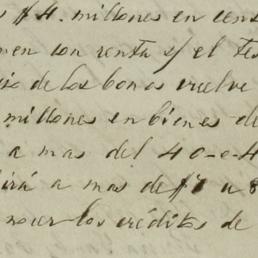 $4. millones en cens
men son renta y el tes
de los bonos vuelve
millones en bienes de
a mas del 40-o-4
irá a mas de $7 u 8
los créditos de